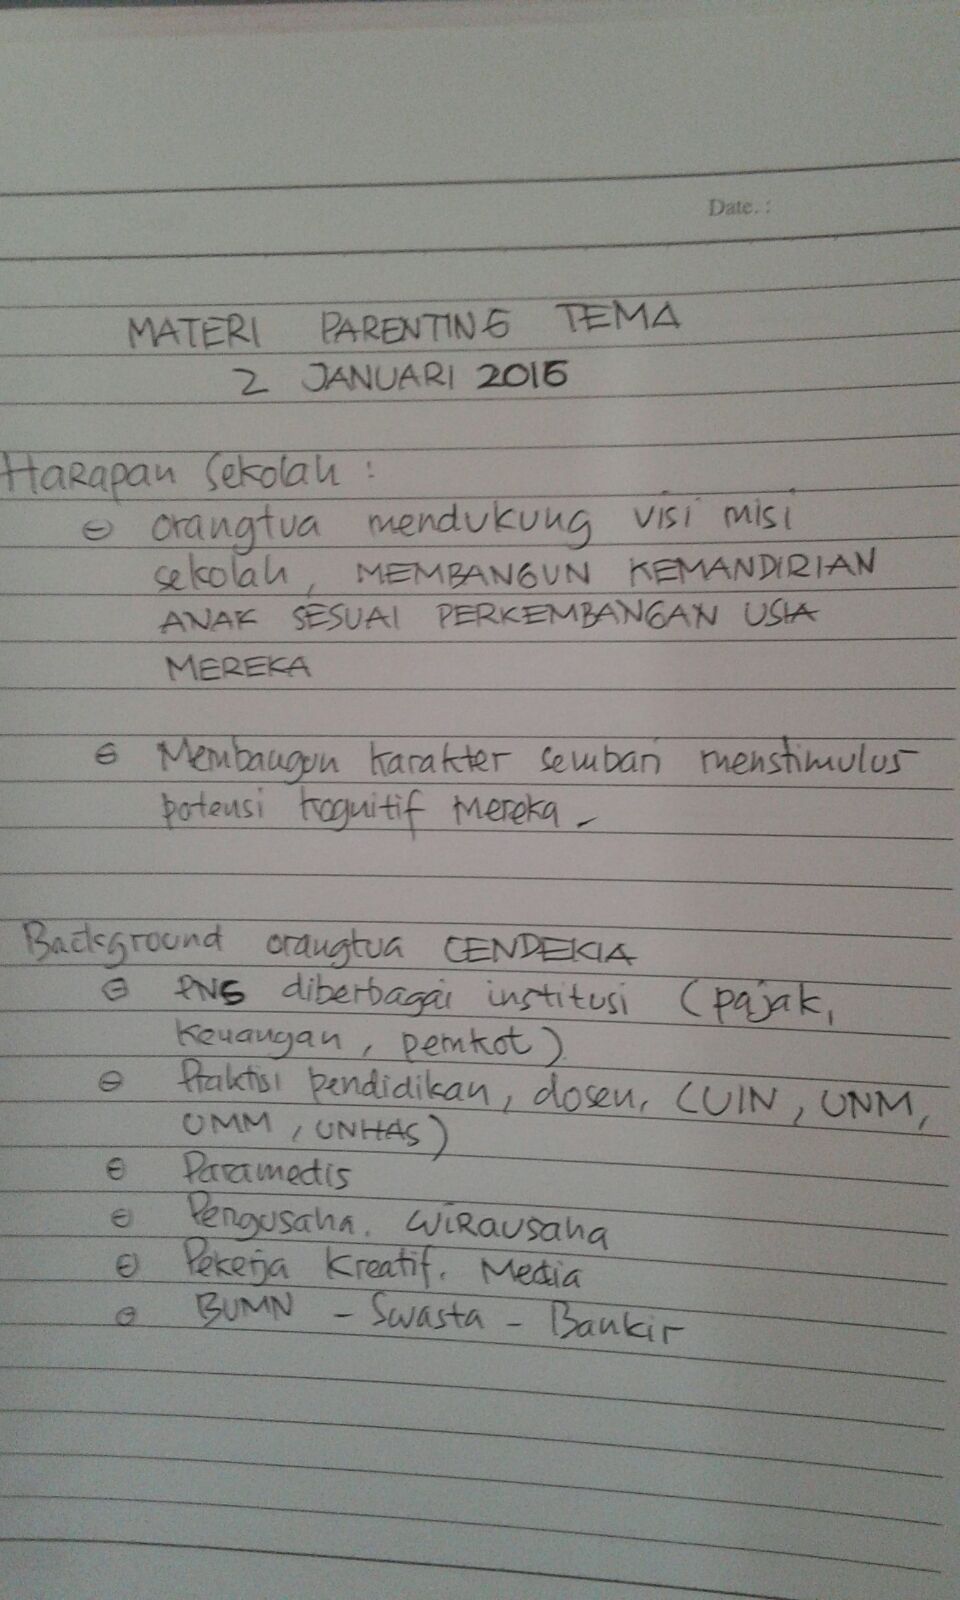 Date. :
MATERI PARENTING TEMA
2 JANUARI 2015
Harapan sekolah :
orangtua mendukung visi misi
sekolah, MEMBANGUN KEMANDIRIAN
ANAK SESUAI PERKEMBANGAN USIA
MEREKA
Membangun karakter sembari menstimulus
potensi kognitif Mereka -
Background orangtua CENDEKIA
PNS diberbagai institusi (pajak,
keuangan, pemkot)
Praktisi pendidikan, dosen, (UIN, UNM,
UMM, UNHAS)
Paramedis
Pengusaha. WiRausaha
Pekerja Kreatif. Media
BUMN - Swasta - Bankir